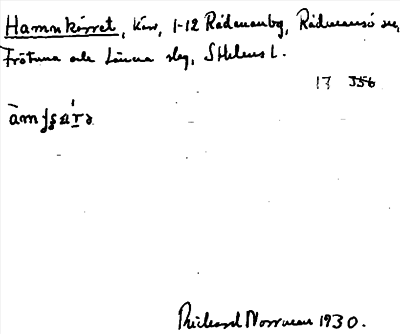 Hamnkärret, kärr, 1-12 Rådmanby, Rådmansö sn,
Frötuna och Länna slg, Sthlms l.
17 356
Richard Norrman 1930.